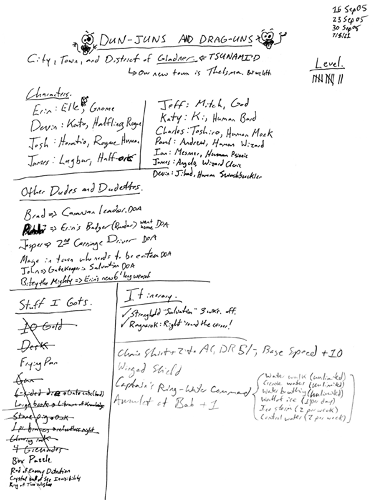 16 Sep 05
23 Sep 05
30 Sep 05
DUN-JUNS AND DRAG-UNS
City, Town, and District of Gladner & TSUNAMI'D
Our new town is Thelsman. Beneath
Level.
Characters.
Erin: Elk, Gnome
Devin: Kato, Halfling Rogue
Josh: Horatio, Rogue, Human
James: Lugbur, Half-orc
Jeff: Mitch, God
Katy: Ki, Human Bard
Charles: Toshiro, Human Monk
Paul: Andrew, Human Wizard
Ian: Mesmer, Human Psionic
James: Angelo, Wizard Cleric
Devin: Jihad, Human Swashbuckler
Other Dudes and Dudettes.
Brad => Caravan Leader. DOA
=> Erin's Badger (Rudar) DOA
Jasper => 2nd Carriage Driver DOA
Mage in town who needs to be eaten DOA
John => Gatekeeper in Salvation DOA
Bitsy the Mighty => Erin's new
Stuff I Gots.
10 Gold
Desk
Frying Pan
Box Puzzle
Rod of Enemy Detection
Crystal ball of See Invisibility
Itinerary.
✓ Stronghold "Salvation" 3 wks. off.
✓ Ragnarok: Right 'round the corner!
Chain Shirt +2 to AC, DR 5/-, Base Speed +10
Winged Shield
Captain's Ring - Water Command
Amulet of Bob +1
Water walk (unlimited)
Create water (unlimited)
Water breathing (unlimited)
Ice storm (2 per week)
Control water (2 per week)